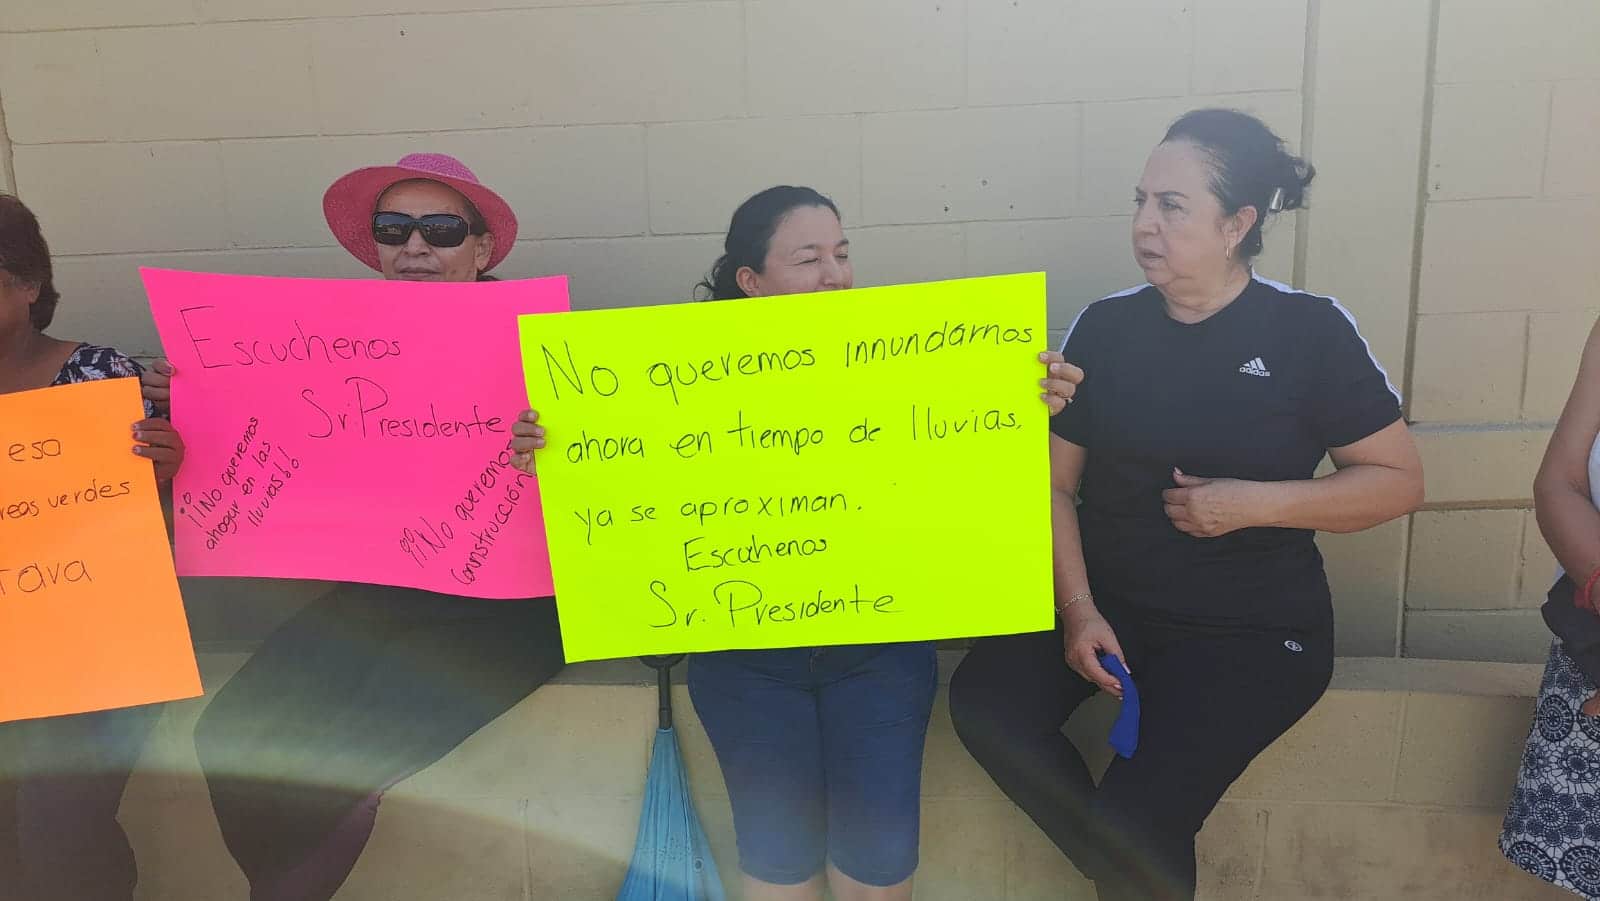 esa
verdes
Escuchenos
Sr. Presidente
¡¡No queremos
ahogar en las
lluvias!!
¡¡¡No queremos
construcción
No queremos innundarnos
ahora en tiempo de lluvias.
ya se aproximan.
Escuhenos
Sr. Presidente
adidas